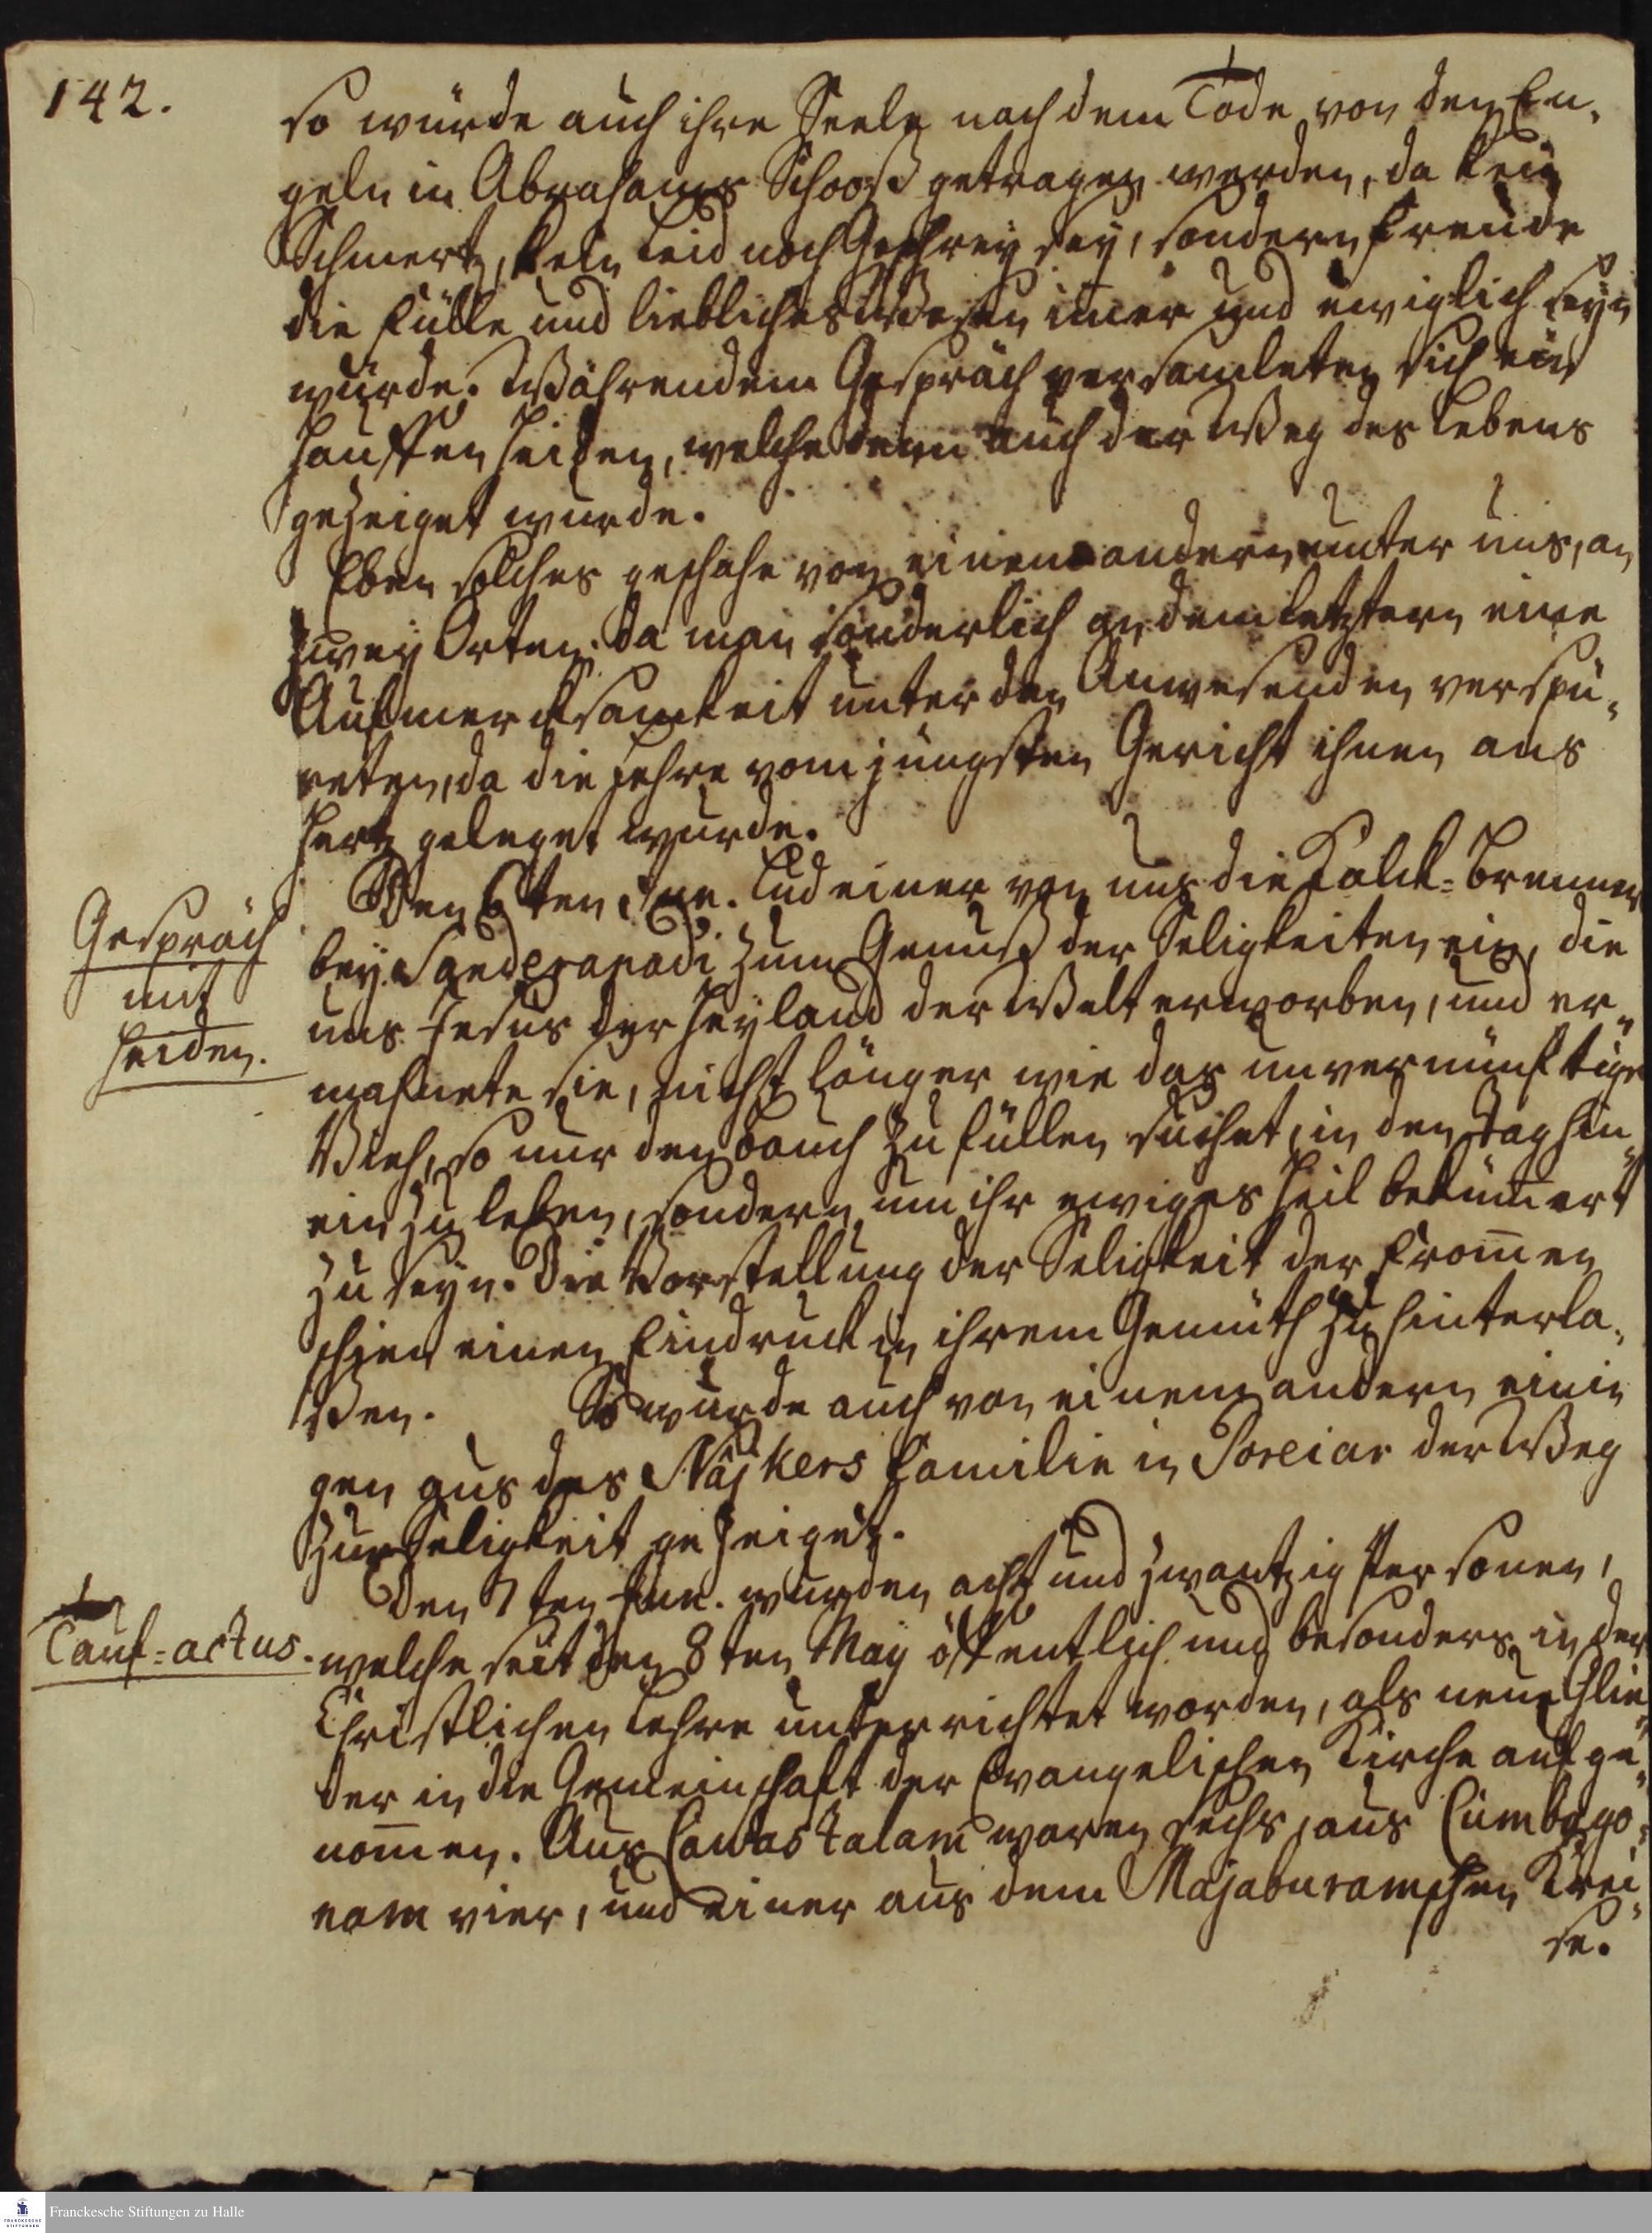 142.
so würde auch ihre Seele nach dem Tode von den En,
geln in Abrahams Schooß getragen werden, da kein
Schmertz, kein Leid noch Geschrey sey, sondern Freude
die Fülle und liebliches Wesen im̄er und ewiglich seyn
würde. Währendem Gespräch versamleten sich ein
Hauffen Heiden, welchen denn auch der Weg des Lebens
gezeiget wurde.
Eben solches geschahe von einem andern unter uns, an
zwey Orten: da man sonderlich an dem letztern eine
Aufmercksamkeit unter den Anwesenden verspü,
reten, da die Lehre vom jüngsten Gericht ihnen ans
Hertz geleget wurde.
Gespräch
mit
Heiden.
Den 6ten Jun. lud einer von uns die Kalck-Brenner
bey Sandirapadi zum Genuß der Seligkeiten ein, die
uns Jesus der Heyland der Welt erworben, und er,
mahnete sie, nicht länger wie das unvernünftige
Vieh, so nur den Bauch zu füllen suchet, in den Tag hin,
ein zu leben, sondern um ihr ewiges Heil bekümmert
zu seyn. Die Vorstellung der Seligkeit der From̄en
schien einen Eindruck in ihrem Gemüth zu hinterla,
ßen. So wurde auch von einem andern eini
gen aus des Näjkers Familie in Poreiar der Weg
zur Seligkeit gezeiget.
Tauf-actus.
Den 7ten Jun. wurden acht und zwantzig Personen,
welche seit den 8ten May öffentlich und besonders in der
Christlichen Lehre unterrichtet worden, als neue Glie,
der in die Gemeinschaft der Evangelischen Kirche aufge,
nom̄en. Aus Cawastalam waren sechs, aus Cumbago,
nam vier, und einer aus dem Majaburamschen Krei,
se.
Franckesche Stiftungen zu Halle
FRANCKESCHE
STIFTUNGEN